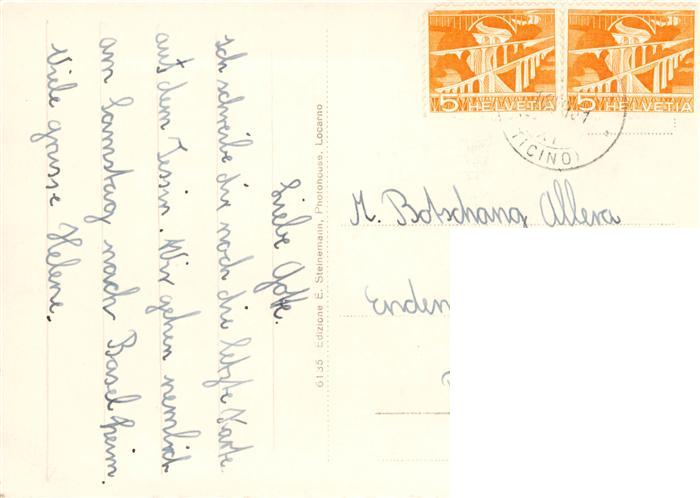 Liebe Gotte.
Ich schreibe dir noch die letzte Karte
auf dem Tessin. Wir gehen nemlich
am Samstag nach Basel heim.
Viele grüsse Helene.
6135 Edizione E. Steinemann, Photohouse, Locarno
5 HELVETIA
5 HELVETIA
(TICINO)
M. Botschang Allera
Enden